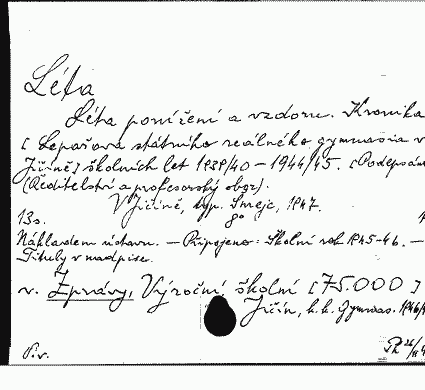 Léta
Léta ponížení a vzdoru. Kronika
[Lepařova státního reálného gymnasia v
Jičíně] školních let 1939/40 – 1944/45. [Podepsán
(Ředitelství a profesorský sbor).
V Jičíně, typ. Smejc, 1947.
13 s. 8°
Nákladem ústavu. – Připojeno: Školní rok 1945-46. –
Tituly v nadpise.
v. Zprávy, Výroční školní [75.000]
Jičín, k. k. Gymnas. 1946/4
P. v.